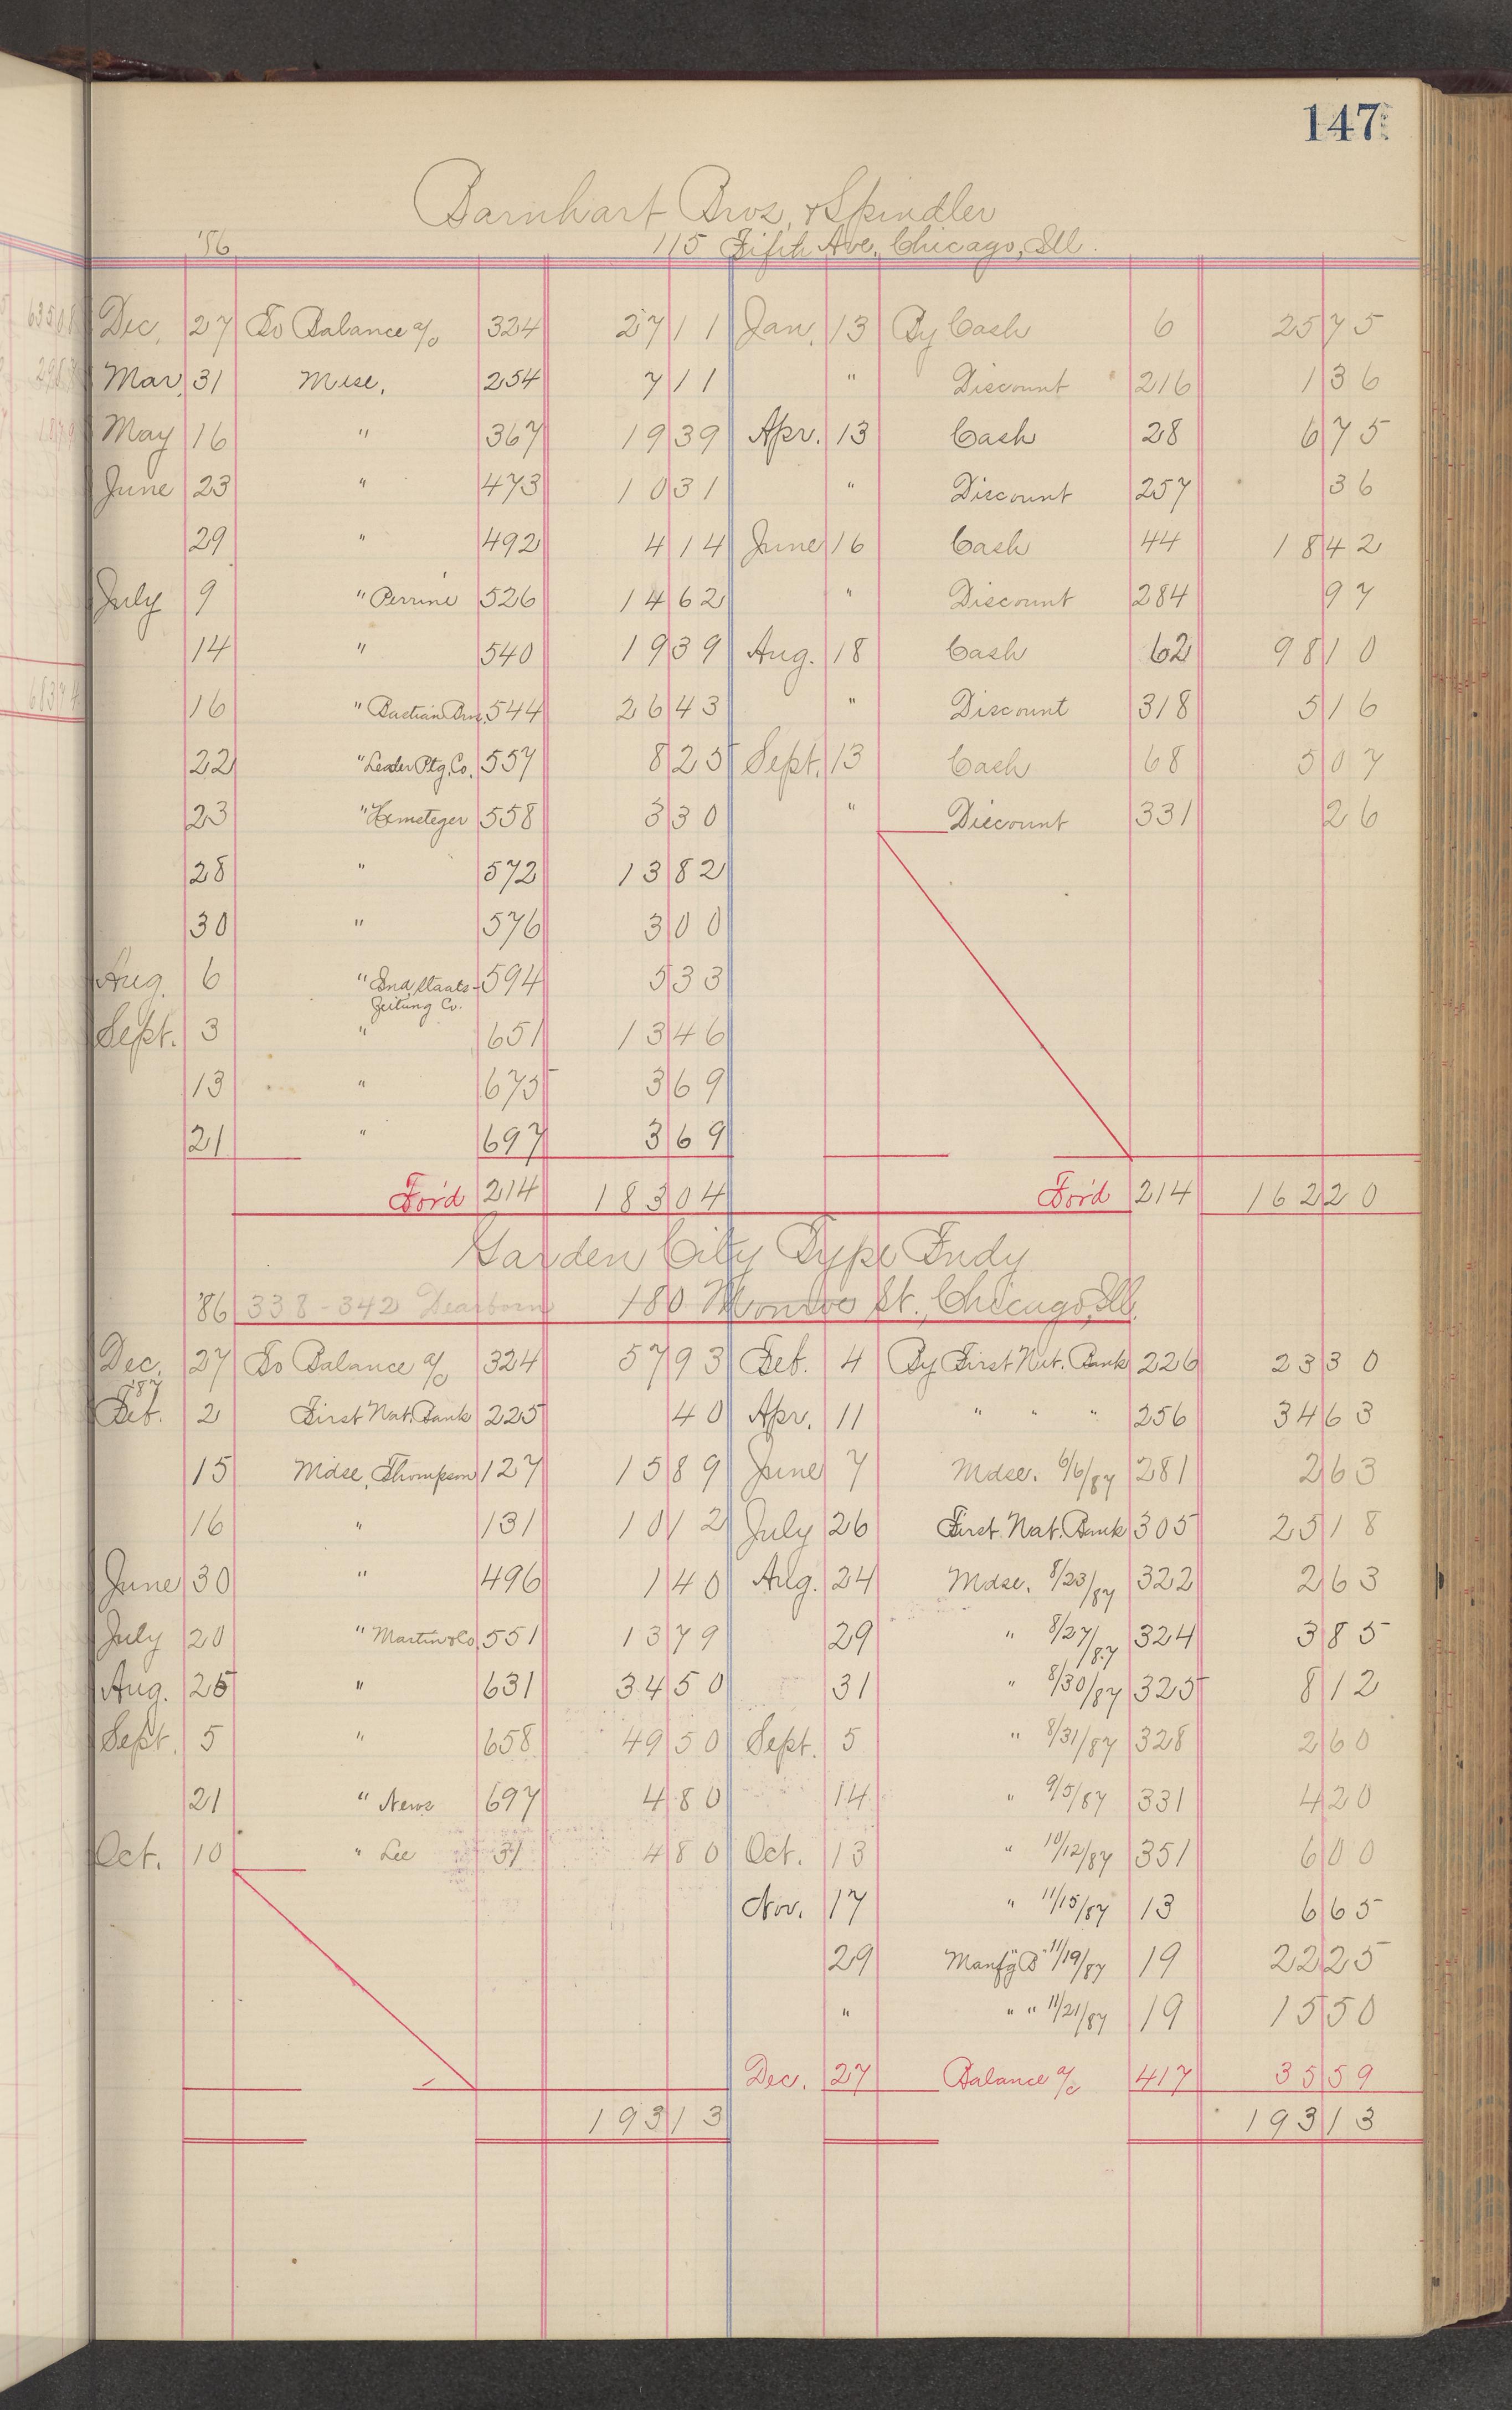 147
Barnhart Bros. & Spindler
'86 115 Fifth Ave. Chicago, Ill.
Dec. 27 To Balance a/c 324 27 11 Jan. 13 By Cash 6 25 75
Mar. 31 Mise. 254 7 11 " Discount 216 1 36
May 16 " 367 19 39 Apr. 13 Cash 28 6 75
June 23 " 473 10 31 " Discount 257 36
29 " 492 4 14 June 16 Cash 44 18 42
July 9 " Perrine 526 14 62 " Discount 284 97
14 " 540 19 39 Aug. 18 Cash 62 98 10
16 " Bastian Bros. 544 26 43 " Discount 318 5 16
22 " Leader Ptg. Co. 557 8 25 Sept. 13 Cash 68 5 07
23 " 558 3 30 " Discount 331 26
28 " 572 13 82
30 " 576 3 00
Aug. 6 " Ind. Staats- 594 5 33
Zeitung Co.
Sept. 3 " 651 13 46
13 " 675 3 69
21 " 697 3 69
For'd 214 183 04 For'd 214 162 20
Garden City Type Fndy
'86 338-342 Dearborn 180 Monroe St., Chicago, Ill.
Dec. 27 To Balance a/c 324 57 93 Feb. 4 By First Nat. Bank 226 23 30
'87
Feb. 2 First Nat. Bank 225 40 Apr. 11 " " " 256 34 63
15 Mdse. Thompson 127 15 89 June 7 Mdse. 6/6/87 281 2 63
16 " 131 10 12 July 26 First Nat. Bank 305 25 18
June 30 " 496 1 40 Aug. 24 Mdse. 8/23/87 322 2 63
July 20 " Martin & Co. 551 13 79 29 " 8/27/87 324 3 85
Aug. 25 " 631 34 50 31 " 8/30/87 325 8 12
Sept. 5 " 658 49 50 Sept. 5 " 8/31/87 328 2 60
21 " News 697 4 80 14 " 9/5/87 331 4 20
Oct. 10 " Lee 31 4 80 Oct. 13 " 10/12/87 351 6 00
Nov. 17 " 11/15/87 13 6 65
29 Manf'g B 11/19/87 19 22 25
" " " 11/21/87 19 15 50
Dec. 27 Balance a/c 417 35 59
193 13 193 13